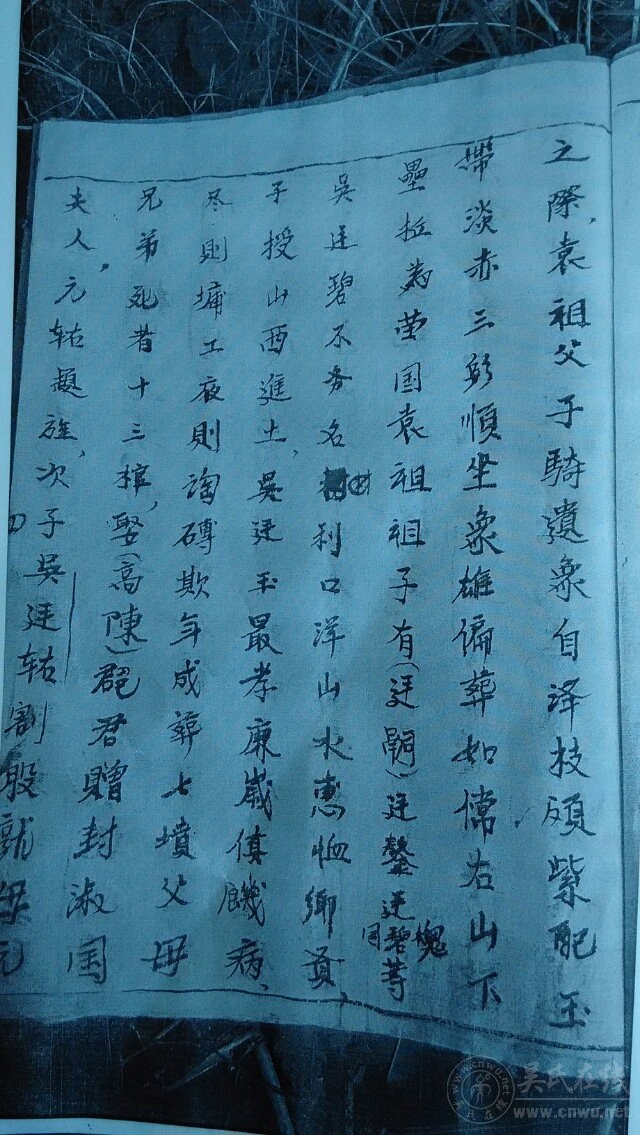 之際,袁祖父子騎遺象自泽技頑紫配玉
帶淡赤三彩順坐象雄偏葬如儒右山下
壘拉為茔国袁祖祖子有(廷嗣)廷鏊廷碧等
同 槐
吳廷碧不务名利口洋山水惠恤鄉員,
子授山西進士,吳廷玉最孝廉嵗值饑病、
尽則埔工夜則淘磚欺年成葬七墳父母
兄弟死者十三棺,娶(高陳)君贈封淑国
夫人,元轱題旌,次子吳廷轱割股就母元
吴氏在线
www.cnwu.net